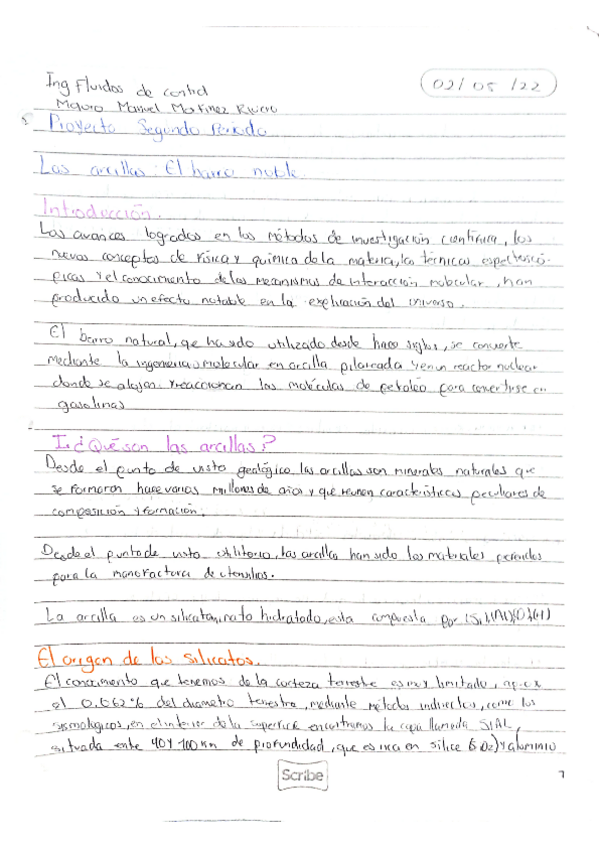 Ing Fluidos de control
02/05/22
Mauro Manuel Martinez Rivero
Proyecto Segundo Parcial
Las arcillas: El barro noble.
Introducción.
Los avances logrados en los métodos de investigación científica, los
nuevos conceptos de física y química de la materia, las técnicas espectroscó-
picas y el conocimiento de los mecanismos de interacción molecular, han
producido un efecto notable en la explicación del universo.
El barro natural, que ha sido utilizado desde hace siglos, se convierte
mediante la ingeniería molecular en arcilla pilareada y en un reactor nuclear
donde se alojan y reaccionan las moléculas de petróleo para convertirse en
gasolinas
I.¿Qué son las arcillas?
Desde el punto de vista geológico, las arcillas son minerales naturales que
se formaron hace varias millones de años y que reunen características peculiares de
composición y formación.
Desde el punto de vista utilitario, las arcillas han sido los materiales
para la manofactura de utensilios.
La arcilla es un hidratado, esta compuesta por (Si)(Al)(O)(H)
El origen de los silicatos.
El conocimiento que tenemos de la corteza terrestre es muy limitado,
el 0.062% del diametro terrestre, mediante métodos indirectos, como los
sismológicos, en el interior de la superficie encontramos la capa llamada SIAL,
situada ente 40 y 100 Km de profundidad, que es rica en sílice (SiO2) y aluminio
Scribe